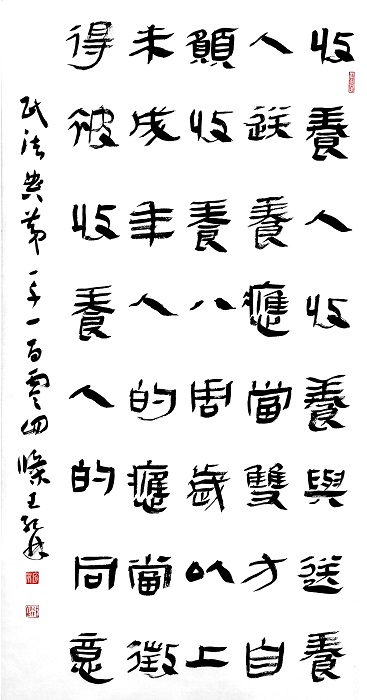 收養人收養與送養
人送養應當雙方自
願收養八周歲以上
未成年人的應當徵
得被收養人的同意
民法典第一千一百零四條王